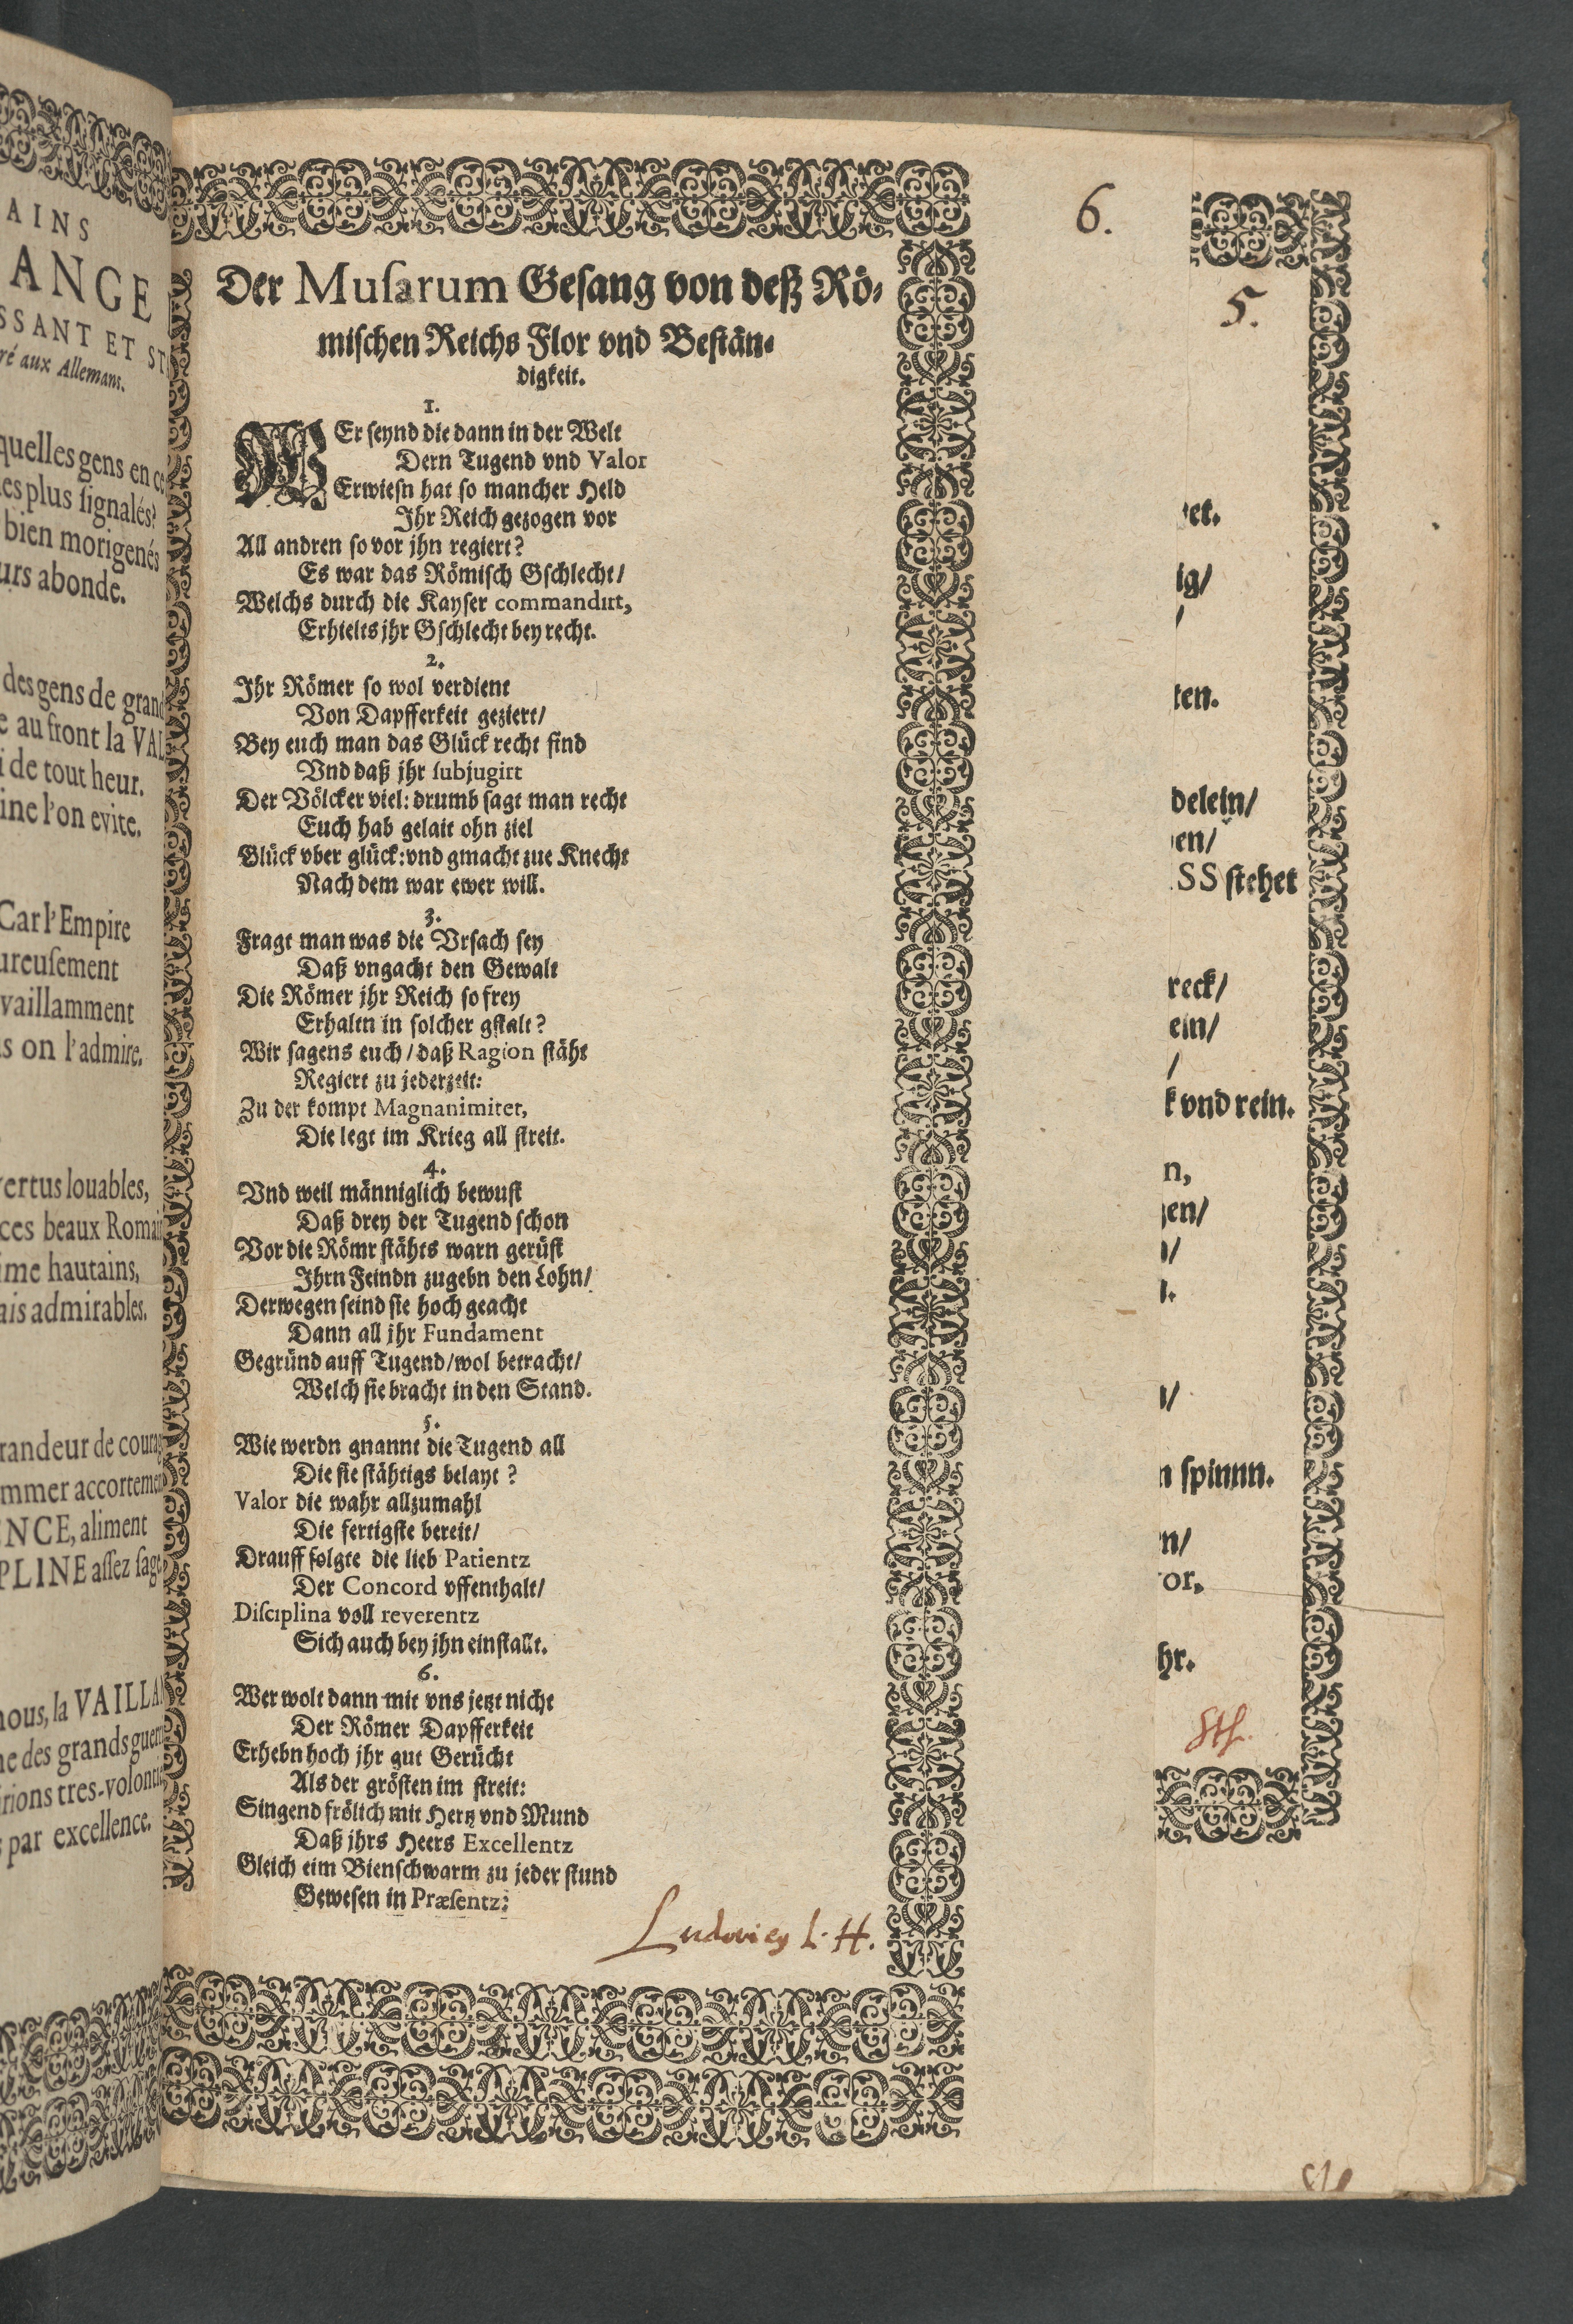 AINS
ANGE
SSANT ET ST
ré aux Allemans.
quelles gens en ce
es plus ſignalés?
bien morigenés
urs abonde.
des gens de grand
e au front la VAL
i de tout heur.
ine l'on evite.
Car l'Empire
ureuſement
vaillamment
s on l'admire.
vertus louables,
ces beaux Romain
ime hautains,
ais admirables.
randeur de courag
mmer accortemen
ENCE, aliment
PLINE aſſez ſage
nous, la VAILLA
ne des grands guerr
irions tres-volonti
s par excellence.
6.
Der Muſarum Geſang von deß Rö-
miſchen Reichs Flor vnd Beſtän-
digkeit.
1.
WEr ſeynd die dann in der Welt
Dern Tugend vnd Valor
Erwieſn hat ſo mancher Held
Ihr Reich gezogen vor
All andren ſo vor jhn regiert?
Es war das Römiſch Gſchlecht/
Welchs durch die Kayſer commandirt,
Erhielts jhr Gſchlecht bey recht.
2.
Ihr Römer ſo wol verdient
Von Dapfferkeit geziert/
Bey euch man das Glück recht find
Vnd daß jhr ſubjugirt
Der Völcker viel: drumb ſagt man recht
Euch hab gelait ohn ziel
Glück vber glück: vnd gmacht zue Knecht
Nach dem war ewer will.
3.
Fragt man was die Vrſach ſey
Daß vngacht den Gewalt
Die Römer jhr Reich ſo frey
Erhaltn in ſolcher gſtalt?
Wir ſagens euch/ daß Ragion ſtäht
Regiert zu jederzeit:
Zu der kompt Magnanimitet,
Die legt im Krieg all ſtreit.
4.
Vnd weil männiglich bewuſt
Daß drey der Tugend ſchon
Vor die Römr ſtähts warn gerüſt
Ihrn Feindn zugebn den Lohn/
Derwegen ſeind ſie hoch geacht
Dann all jhr Fundament
Gegründ auff Tugend/ wol betracht/
Welch ſie bracht in den Stand.
5.
Wie werdn gnannt die Tugend all
Die ſie ſtähtigs belayt?
Valor die wahr allzumahl
Die fertigſte bereit/
Drauff folgte die lieb Patientz
Der Concord vffenthalt/
Diſciplina voll reverentz
Sich auch bey jhn einſtallt.
6.
Wer wolt dann mit vns jetzt nicht
Der Römer Dapfferkeit
Erhebn hoch jhr gut Gerücht
Als der gröſten im ſtreit:
Singend frölich mit Hertz vnd Mund
Daß jhrs Heers Excellentz
Gleich eim Bienſchwarm zu jeder ſtund
Geweſen in Præſentz:
Ludovicy L. H.
5.
et.
ig/
/
ten.
delein/
en/
SS ſtehet
reck/
ein/
/
k vnd rein.
n,
en/
/
.
/
n ſpinnn.
n/
or,
hr.